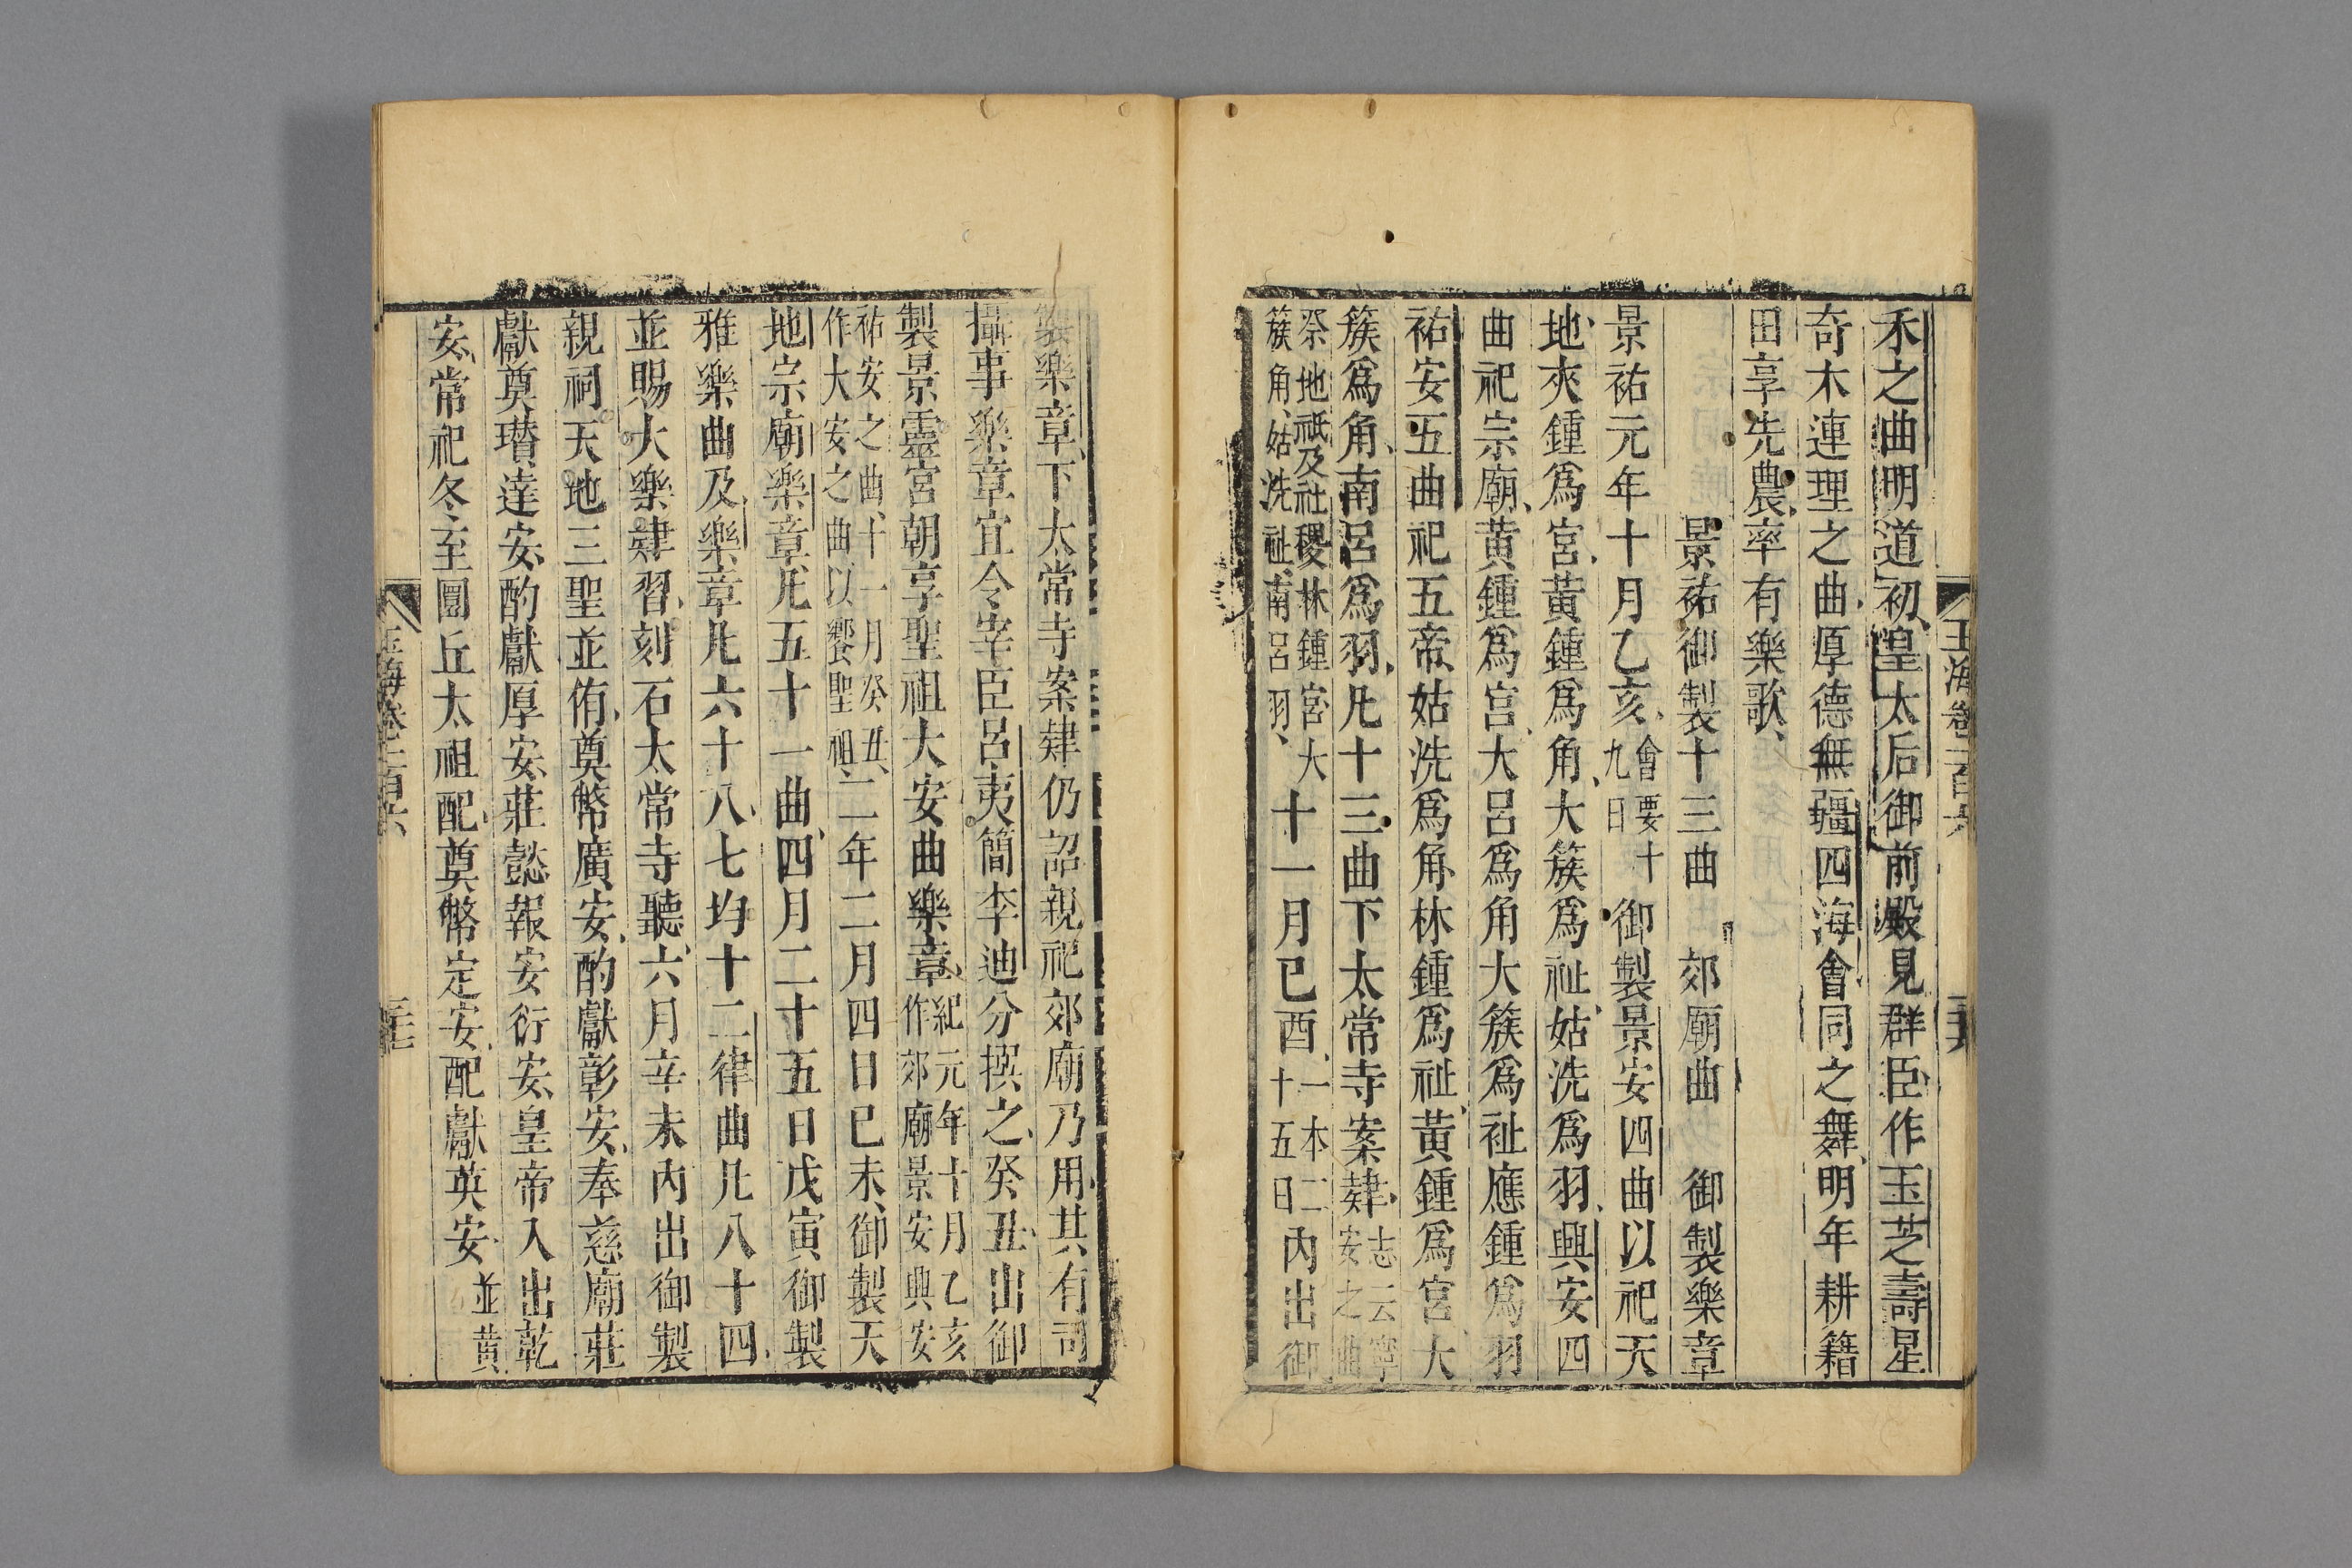 禾之曲明道初皇太后御前殿見群臣作玉芝壽星
奇木連理之曲厚德無疆四海會同之舞明年耕籍
田享先農率有樂歌
景祐御製十三曲 郊廟曲 御製樂章
景祐元年十月乙亥會要十九日御製景安四曲以祀天
地夾鍾爲宮黃鍾爲角大簇爲祉姑洗爲羽興安四
曲祀宗廟黃鍾爲宮大呂爲角大簇爲祉應鍾爲羽
祐安五曲祀五帝姑洗爲角林鍾爲祉黃鍾爲宮大
簇爲角南呂爲羽凡十三曲下太常寺案肄志云寧安之曲
祭地祇及社稷林鍾宮大簇角姑洗祉南呂羽十一月己酉一本二十五日內出御
製樂章下太常寺案肄仍詔親祀郊廟乃用其有司
攝事樂章宜令宰臣呂夷簡李迪分撰之癸丑出御
製景靈宮朝享聖祖大安曲樂章紀元年十月乙亥作郊廟景安興安
祐安之曲十一月癸丑作大安之曲以饗聖祖二年二月四日己未御製天
地宗廟樂章凡五十一曲四月二十五日戊寅御製
雅樂曲及樂章凡六十八七均十二律曲凡八十四
並賜大樂肄習刻石太常寺聽六月辛未內出御製
親祠天地三聖並侑奠幣廣安酌獻彰安奉慈廟莊
獻奠瓚達安酌獻厚安莊懿報安衍安皇帝入出乾
安常祀冬至圜丘太祖配奠幣定安配獻英安並黃
玉海卷一百六
玉海卷一百六